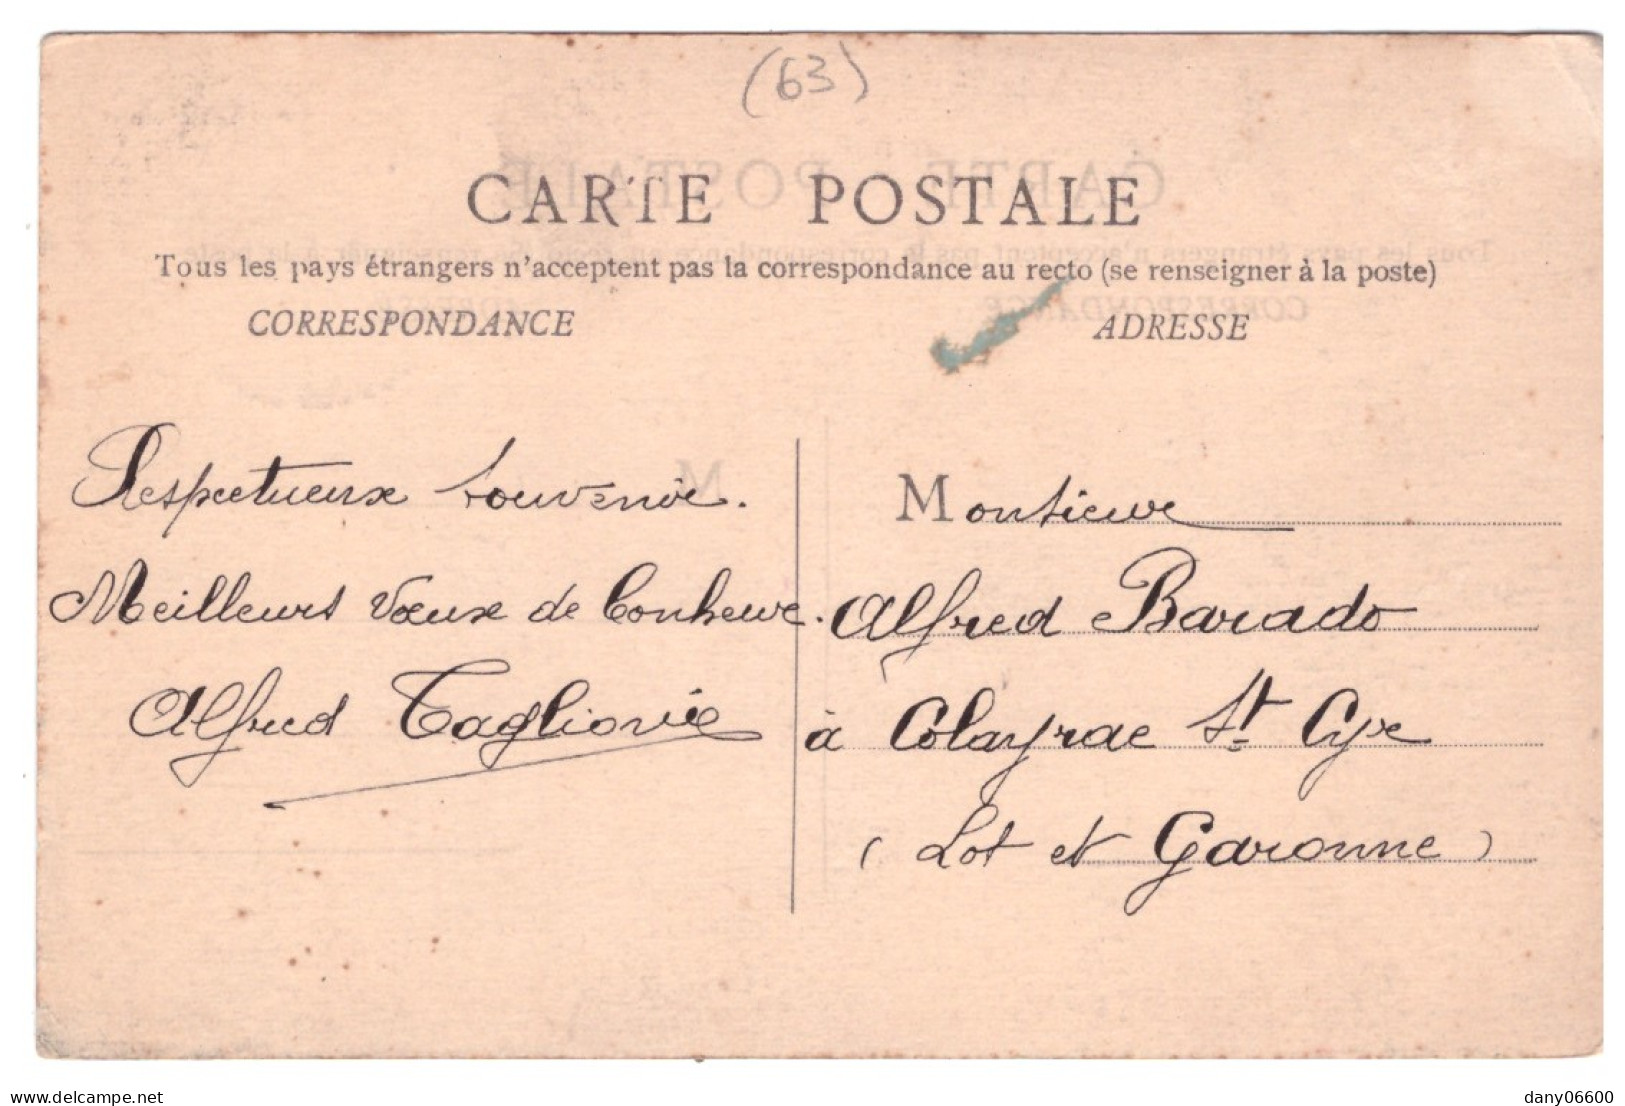 (63)
CARTE POSTALE
Tous les pays étrangers n'acceptent pas la correspondance au recto (se renseigner à la poste)
CORRESPONDANCE
ADRESSE
Respectueux souvenir.
Meilleurs vœux de bonheur.
Alfred Taglioni
Monsieur
Alfred Barado
à Colayrac St Cyr
(Lot et Garonne)
www.delcampe.net
dany06600